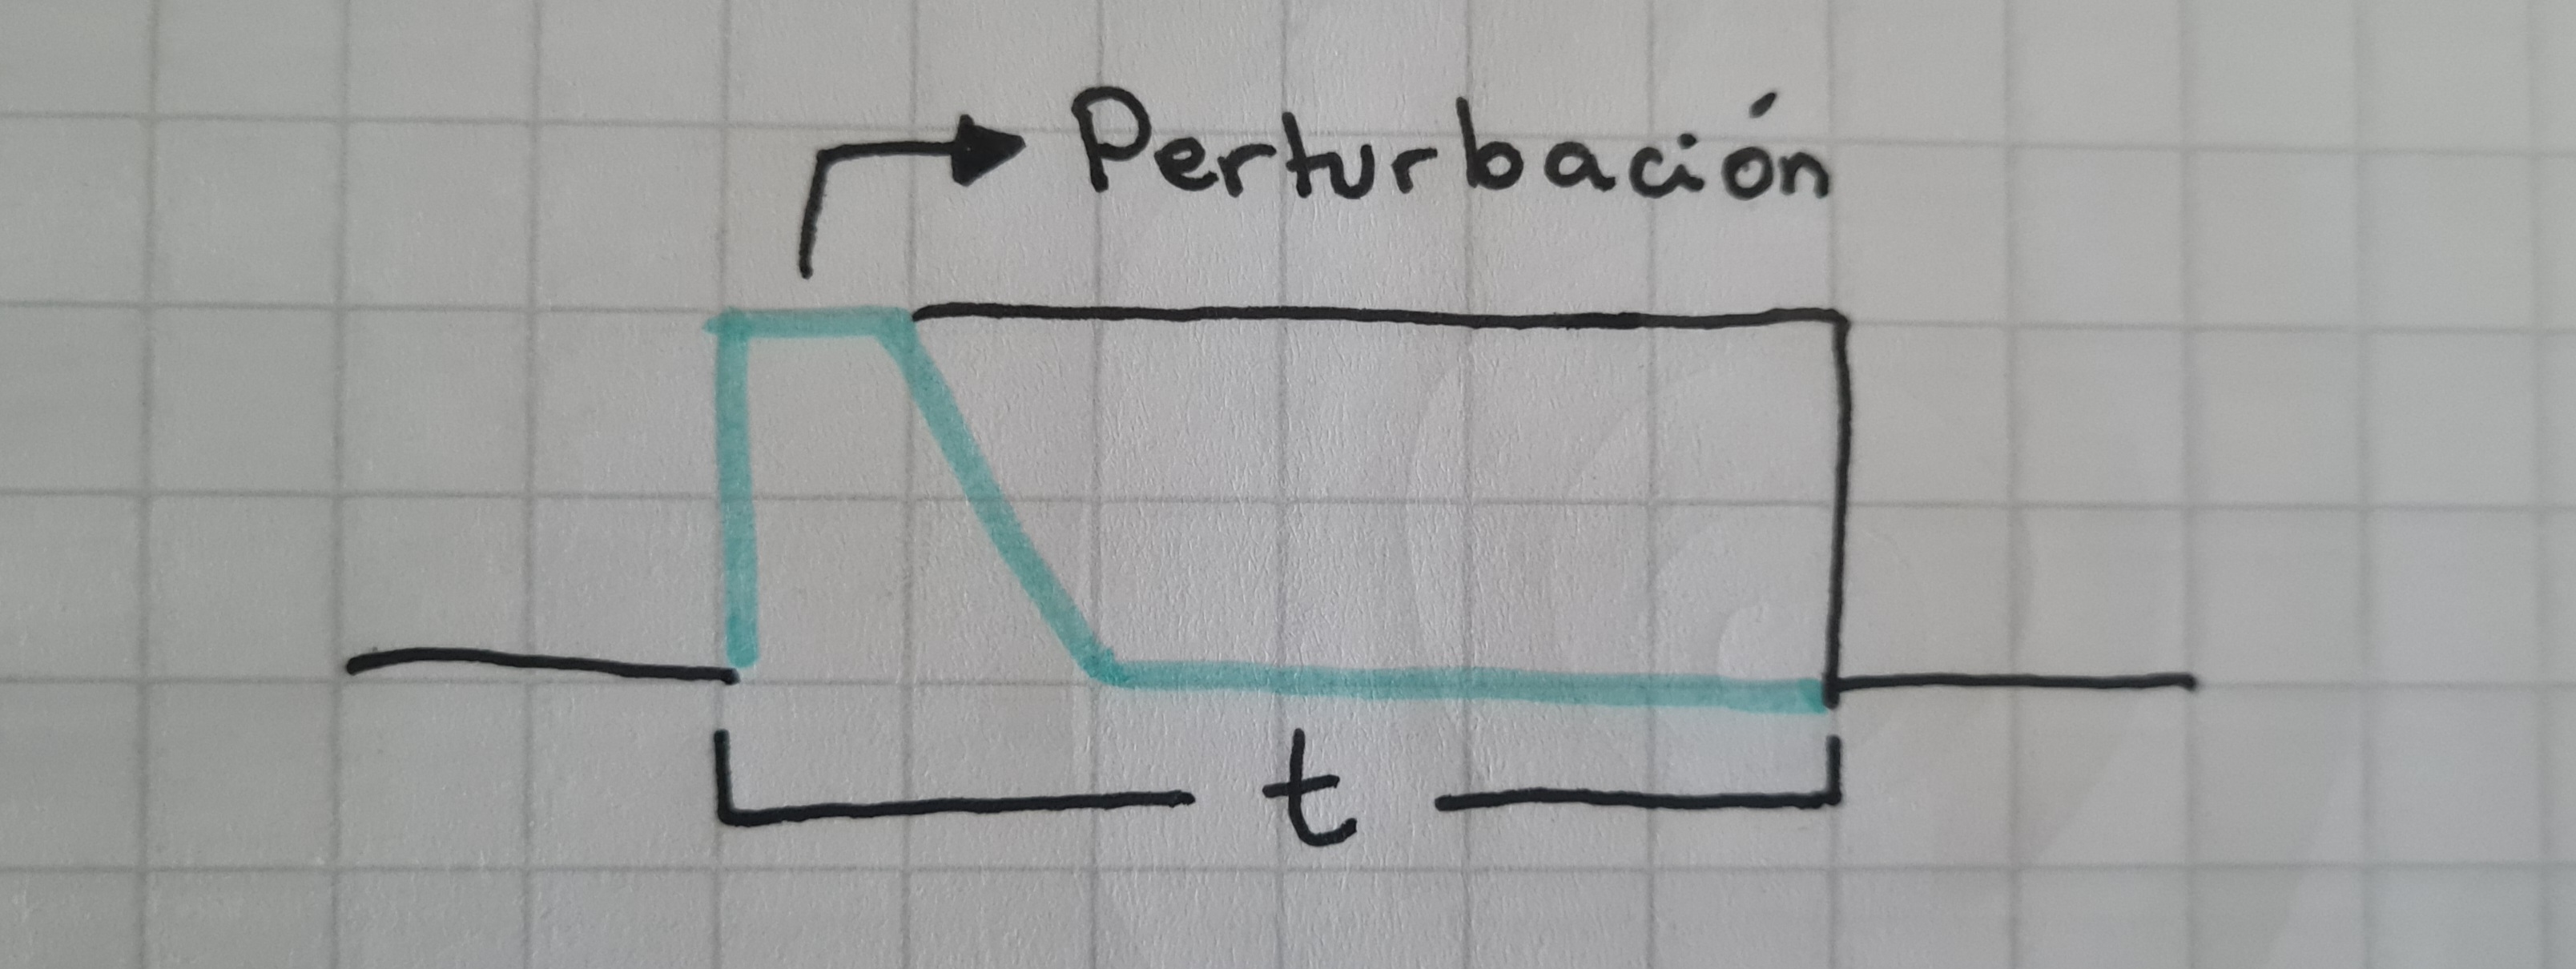 Perturbación
t